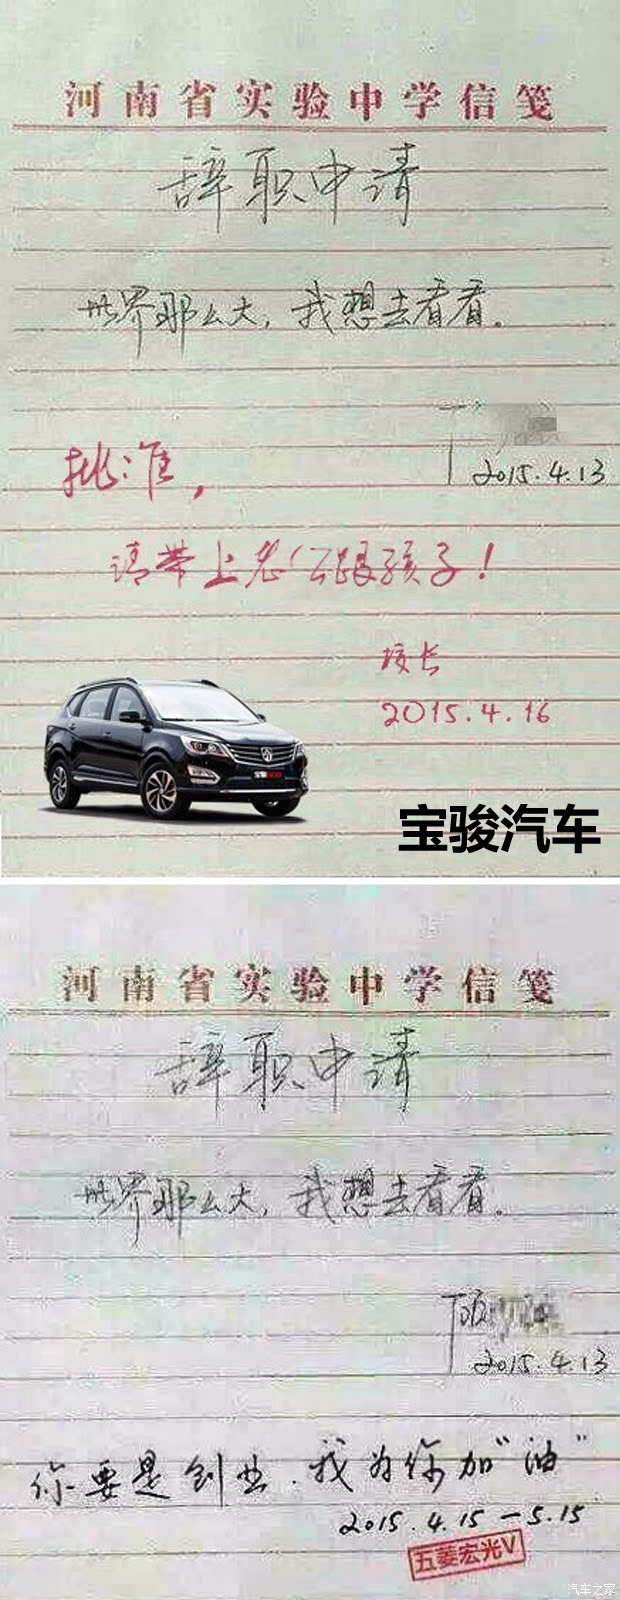 河南省实验中学信笺
辞职申请
世界那么大，我想去看看。
2015.4.13
批准，
请带上老公跟孩子！
校长
2015.4.16
宝骏汽车
河南省实验中学信笺
辞职申请
世界那么大，我想去看看。
顾
2015.4.13
你要是创业，我为你加“油”
2015.4.15—5.15
五菱宏光V
汽车之家